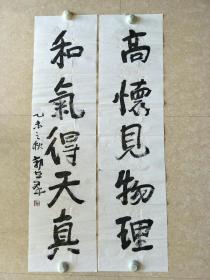 高懷見物理
和氣得天真
乙未之秋